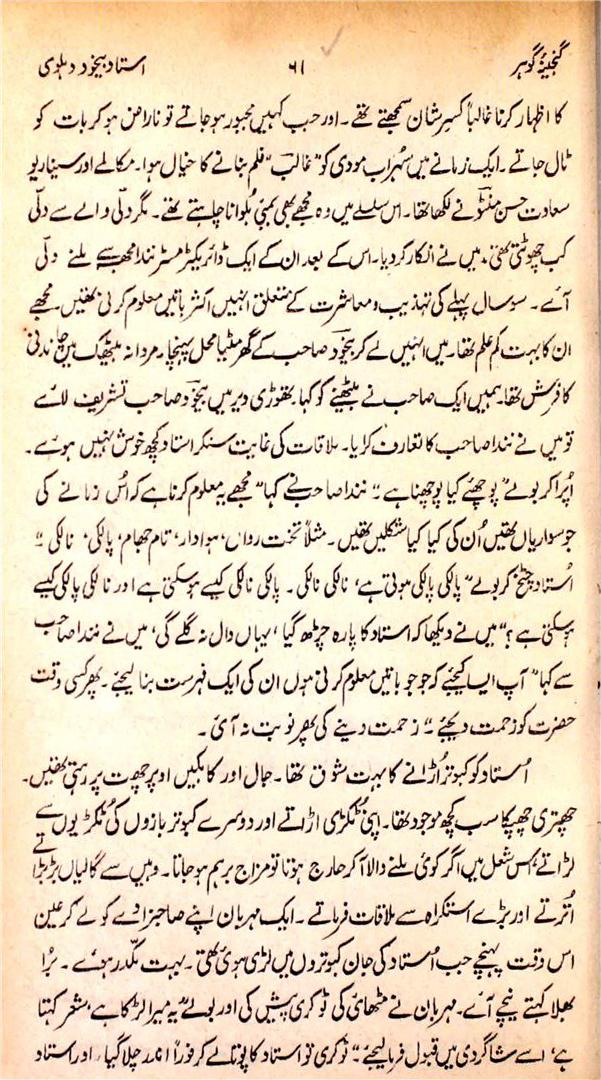 گنجینۂ گوہر ۶۱ استاد بیخود دہلوی
کا اظہار کرنا غالباً کسرِ شان سمجھتے تھے۔ اور جب کہیں مجبور ہو جاتے تو ناراض ہو کر بات کو
ٹال جاتے۔ ایک زمانے میں سُہراب مودی کو "غالب" فلم بنانے کا خیال ہوا۔ مکالمے اور سیناریو
سعادت حسن منٹو نے لکھا تھا۔ اس سلسلے میں وہ مجھے بھی بمبئی بُلوانا چاہتے تھے۔ مگر دلّی والے سے دلّی
کب چھوٹتی تھی۔ میں نے انکار کر دیا۔ اس کے بعد ان کے ایک ڈائریکٹر مسٹر نندا مجھ سے ملنے دلّی
آئے۔ سو سال پہلے کی تہذیب و معاشرت کے متعلق انہیں اکثر باتیں معلوم کرنی تھیں۔ مجھے
ان کا بہت کم علم تھا۔ میں انہیں لے کر بیخود صاحب کے گھر مٹیا محل پہنچا۔ مردانہ بیٹھک میں چاندنی
کا فرش تھا۔ ہمیں ایک صاحب نے بیٹھنے کو کہا۔ تھوڑی دیر میں بیخود صاحب تشریف لائے
تو میں نے نندا صاحب کا تعارف کرایا۔ ملاقات کی غایت سنکر استاد کچھ خوش نہیں ہوئے۔
اُپرا کر بولے "پوچھئے کیا پوچھنا ہے"۔ نندا صاحب نے کہا "مجھے یہ معلوم کرنا ہے کہ اُس زمانے کی
جو سواریاں تھیں اُن کی کیا کیا شکلیں تھیں۔ مثلاً تخت رواں، ہوادار، تام جھام، پالکی، نالکی"۔
اُستاد چٹخ کر بولے "پالکی پالکی ہوتی ہے، نالکی نالکی۔ پالکی نالکی کیسے ہو سکتی ہے اور نالکی پالکی کیسے
ہو سکتی ہے؟" میں نے دیکھا کہ استاد کا پارہ چڑھ گیا، یہاں دال نہ گلے گی، میں نے نندا صاحب
سے کہا "آپ ایسا کیجئے کہ جو جو باتیں معلوم کرنی ہوں ان کی ایک فہرست بنا لیجئے۔ پھر کسی وقت
حضرت کو زحمت دیجئے"۔ زحمت دینے کی پھر نوبت نہ آئی۔
اُستاد کو کبوتر اُڑانے کا بہت شوق تھا۔ جال اور کابکیں اوپر چھت پر رہتی تھیں۔
چھتری چھیپکا سب کچھ موجود تھا۔ اپنی ٹکڑی اڑاتے اور دوسرے کبوتر بازوں کی ٹکڑیوں سے
لڑاتے، اس شغل میں اگر کوئی ملنے والا آکر حارج ہوتا تو مزاج برہم ہو جاتا۔ وہیں سے گالیاں بڑبڑاتے
اُترتے اور بڑے استکراہ سے ملاقات فرماتے۔ ایک مہربان اپنے صاحبزادے کو لے کر عین
اس وقت پہنچے جب اُستاد کی جان کبوتروں میں لڑی ہوئی تھی۔ بہت مکدّر ہوئے۔ بُرا
بھلا کہتے نیچے آئے۔ مہربان نے مٹھائی کی ٹوکری پیش کی اور بولے "یہ میرا لڑکا ہے، شعر کہتا
ہے، اسے شاگردی میں قبول فرما لیجئے"۔ ٹوکری تو استاد کا پوتا لے کر فوراً اندر چلا گیا، اور استاد